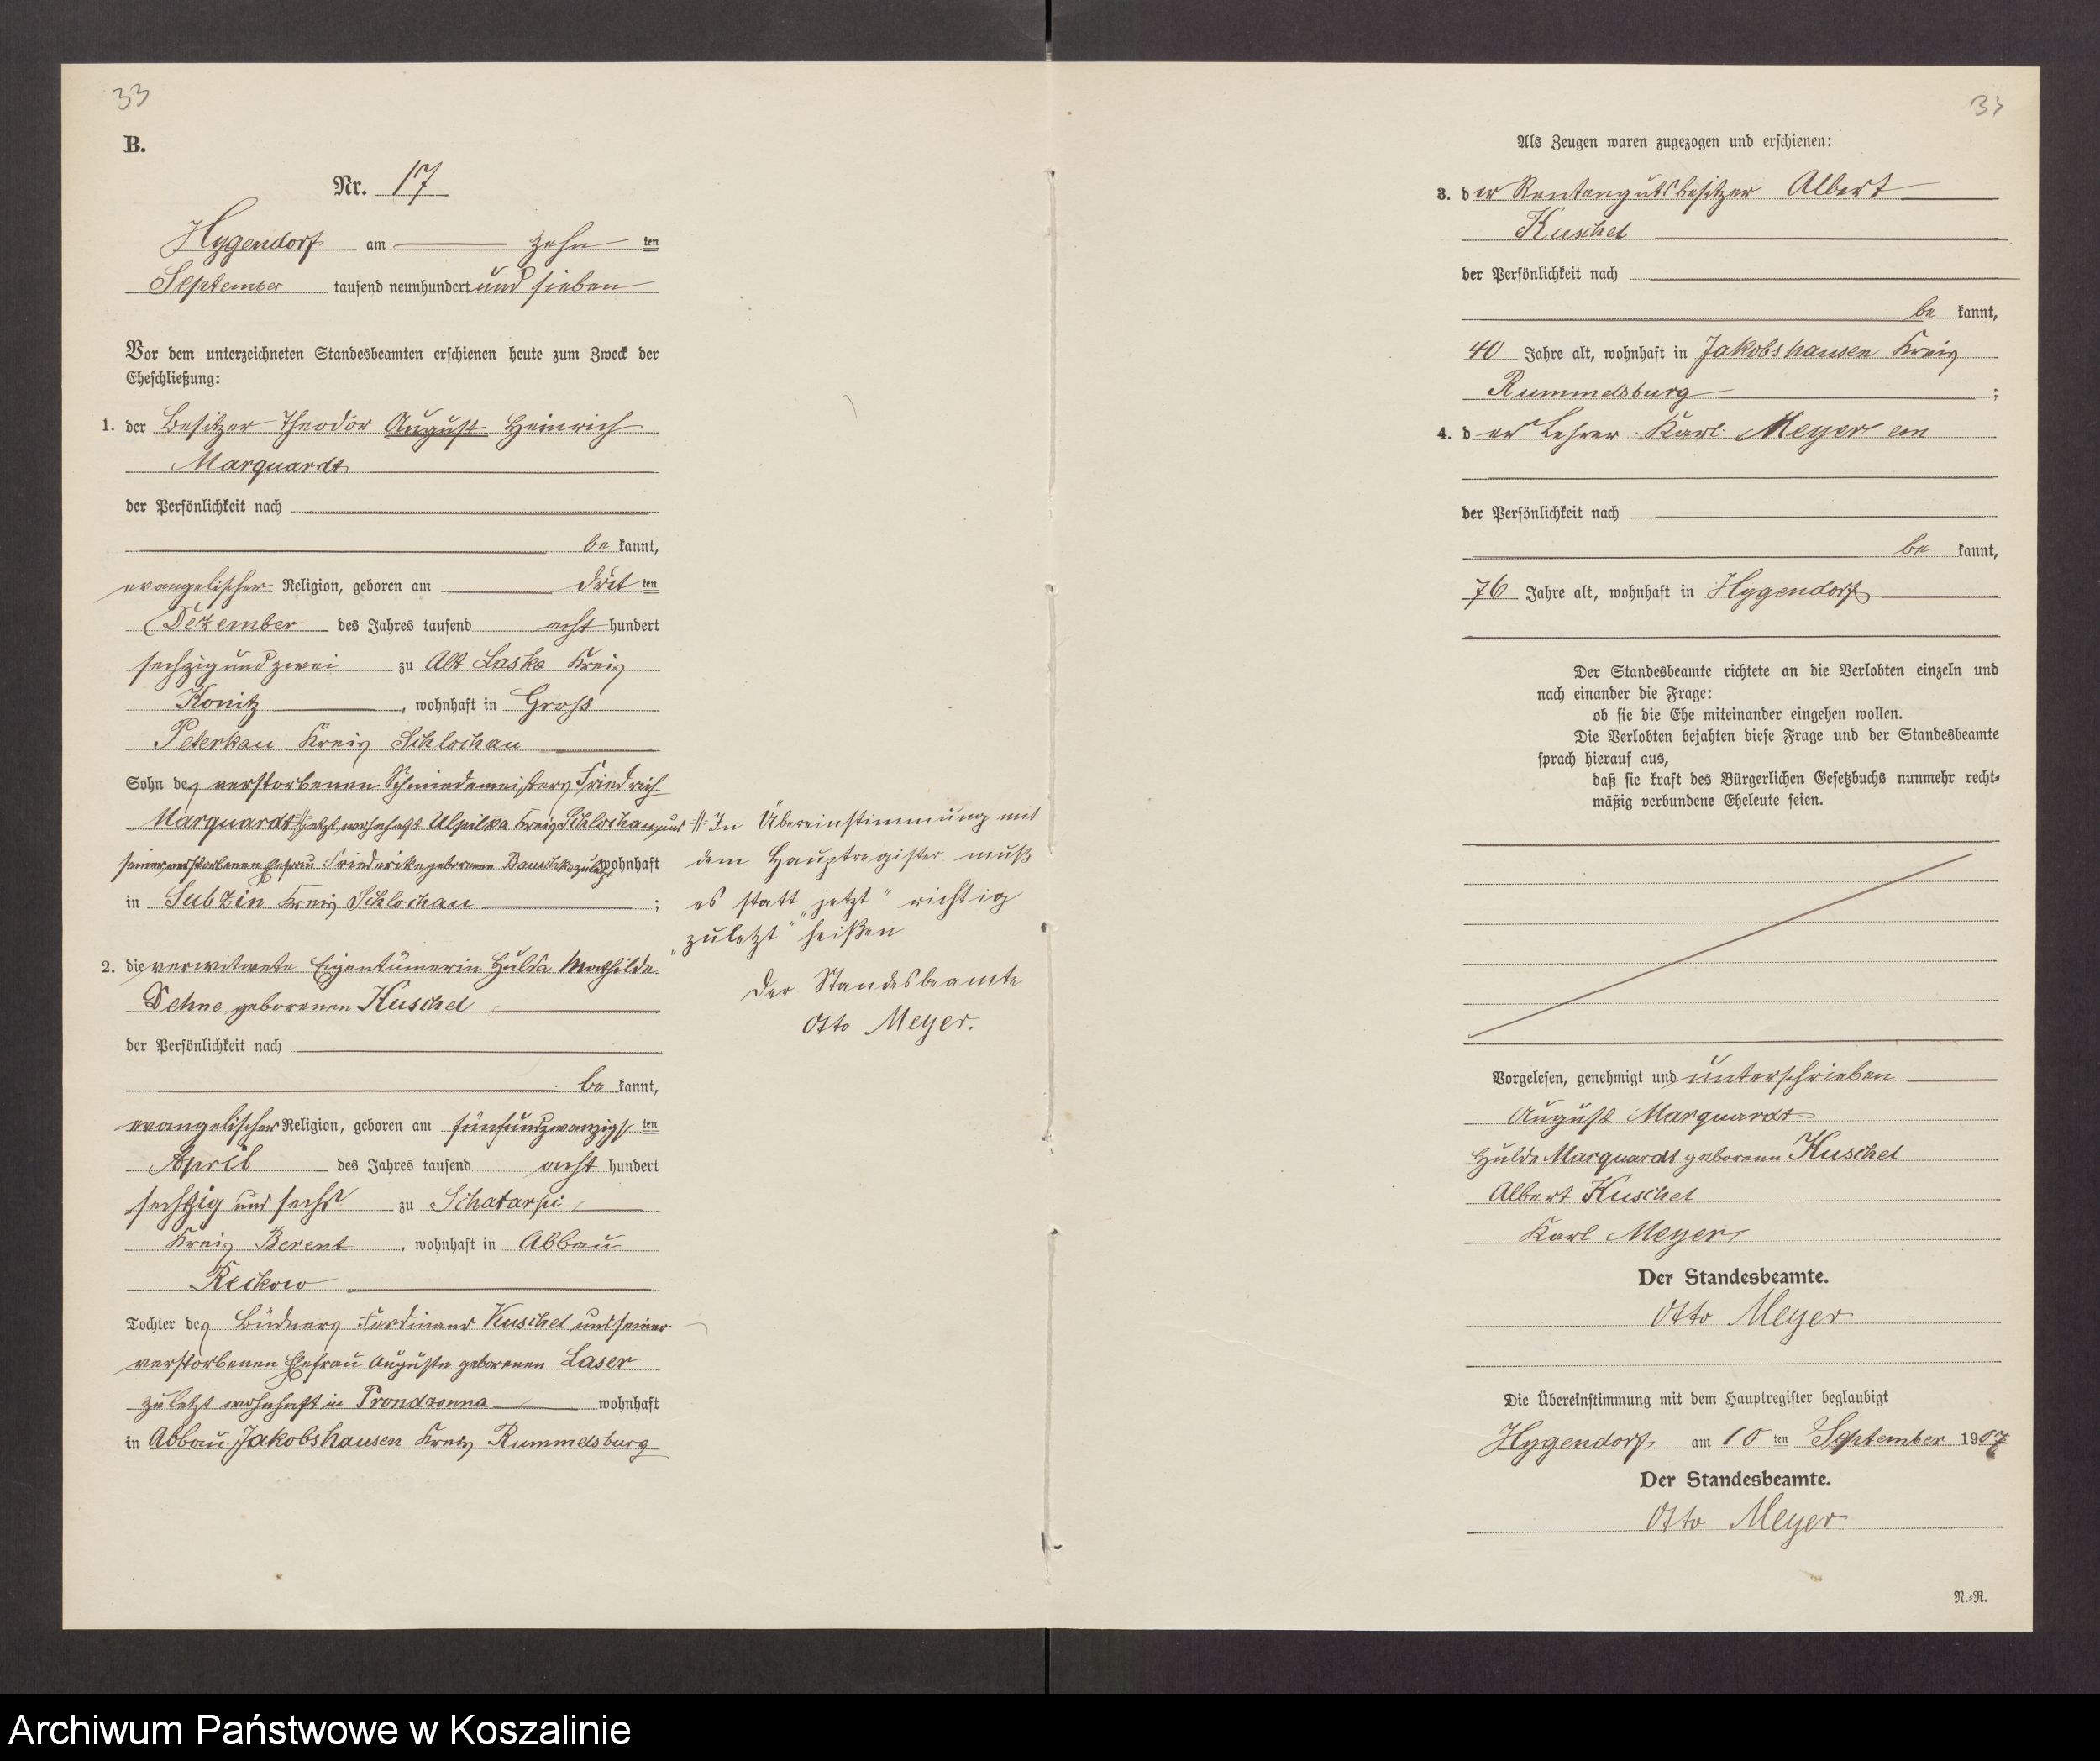 33
B.
Nr. 17
Hygendorf am zehn ten
September tausend neunhundert und sieben
Vor dem unterzeichneten Standesbeamten erschienen heute zum Zweck der
Eheschließung:
1. der Besitzer Theodor August Heinrich
Marquardt
der Persönlichkeit nach
be kannt,
evangelischer Religion, geboren am drit ten
Dezember des Jahres tausend acht hundert
sechzig und zwei zu Alt Laska Kreis
Konitz, wohnhaft in Gross
Peterkau Kreis Schlochau
Sohn des verstorbenen Schmiedemeisters Friedrich
Marquardt jetzt wohnhaft Kreis Schlochau und
seiner verstorbenen Ehefrau Friederike geborenen zuletzt wohnhaft
in Kreis Schlochau;
2. die verwitwete Eigentümerin Hulda Mathilde
Dehne geborenen Kuschel
der Persönlichkeit nach
be kannt,
evangelischer Religion, geboren am fünfundzwanzigs ten
April des Jahres tausend acht hundert
sechszig und sechs zu Schatarpi,
Kreis Berent, wohnhaft in Abbau
Reckow
Tochter des Büdners Ferdinand Kuschel und seiner
verstorbenen Ehefrau Auguste geborenen Laser
zuletzt wohnhaft in Prondzonna wohnhaft
in Abbau Jakobshausen Kreis Rummelsburg
In Übereinstimmung mit
dem Hauptregister muß
es statt „jetzt" richtig
„zuletzt" heißen
Der Standesbeamte
Otto Meyer.
33
Als Zeugen waren zugezogen und erschienen:
3. der Rentengutsbesitzer Albert
Kuschel
der Persönlichkeit nach
be kannt,
40 Jahre alt, wohnhaft in Jakobshausen Kreis
Rummelsburg;
4. der Lehrer Karl Meyer em
der Persönlichkeit nach
be kannt,
76 Jahre alt, wohnhaft in Hygendorf
Der Standesbeamte richtete an die Verlobten einzeln und
nach einander die Frage:
ob sie die Ehe miteinander eingehen wollen.
Die Verlobten bejahten diese Frage und der Standesbeamte
sprach hierauf aus,
daß sie kraft des Bürgerlichen Gesetzbuchs nunmehr recht-
mäßig verbundene Eheleute seien.
Vorgelesen, genehmigt und unterschrieben
August Marquardt
Hulda Marquardt geborene Kuschel
Albert Kuschel
Karl Meyer
Der Standesbeamte.
Otto Meyer
Die Übereinstimmung mit dem Hauptregister beglaubigt
Hygendorf am 10 ten September 1907
Der Standesbeamte.
Otto Meyer
N.-R.
Archiwum Państwowe w Koszalinie